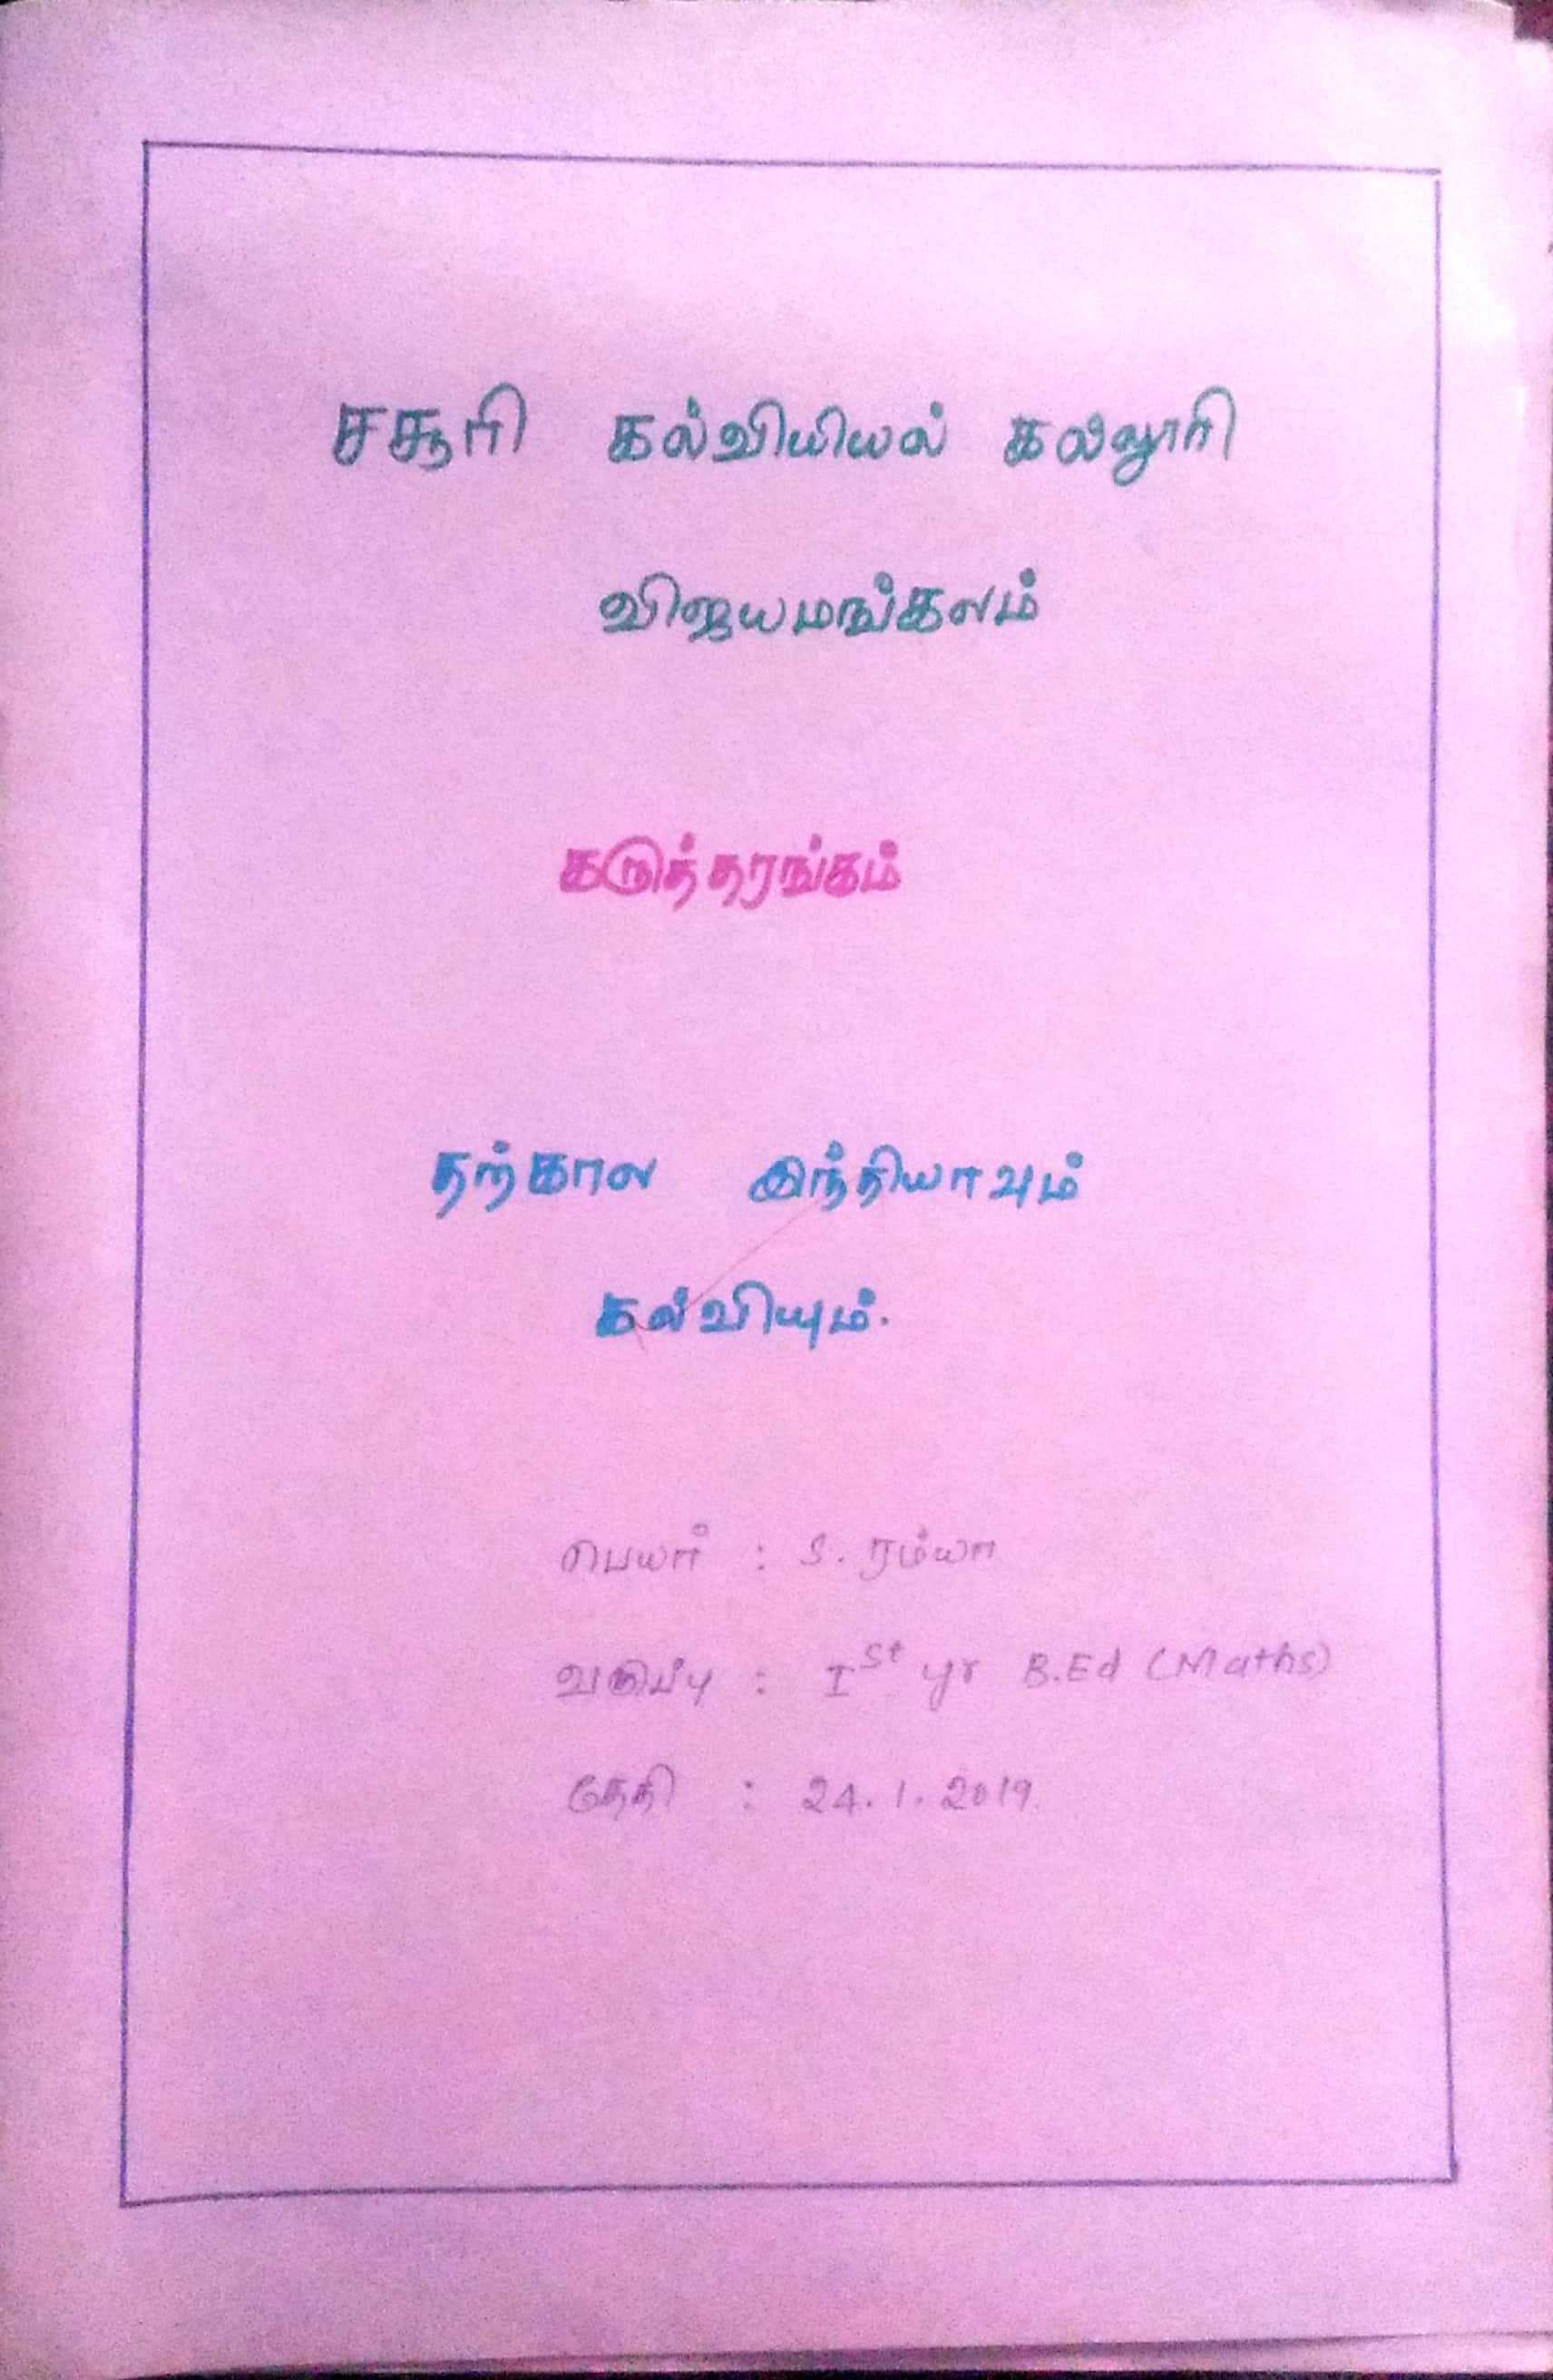 சசூரி கல்வியியல் கல்லூரி
விஜயமங்கலம்
கருத்தரங்கம்
தற்கால இந்தியாவும்
கல்வியும்.
பெயர் : S. ரம்யா
வகுப்பு : Iˢᵗ yr B.Ed (Maths)
தேதி : 24.1.2019